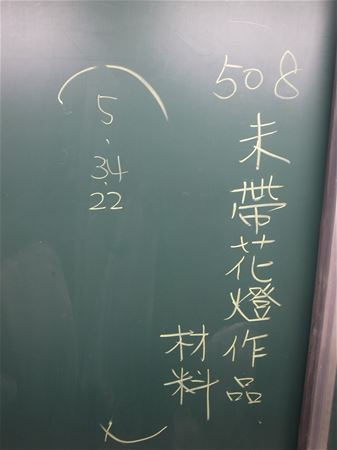 508
未帶花燈作品
材料
5、
34、
22